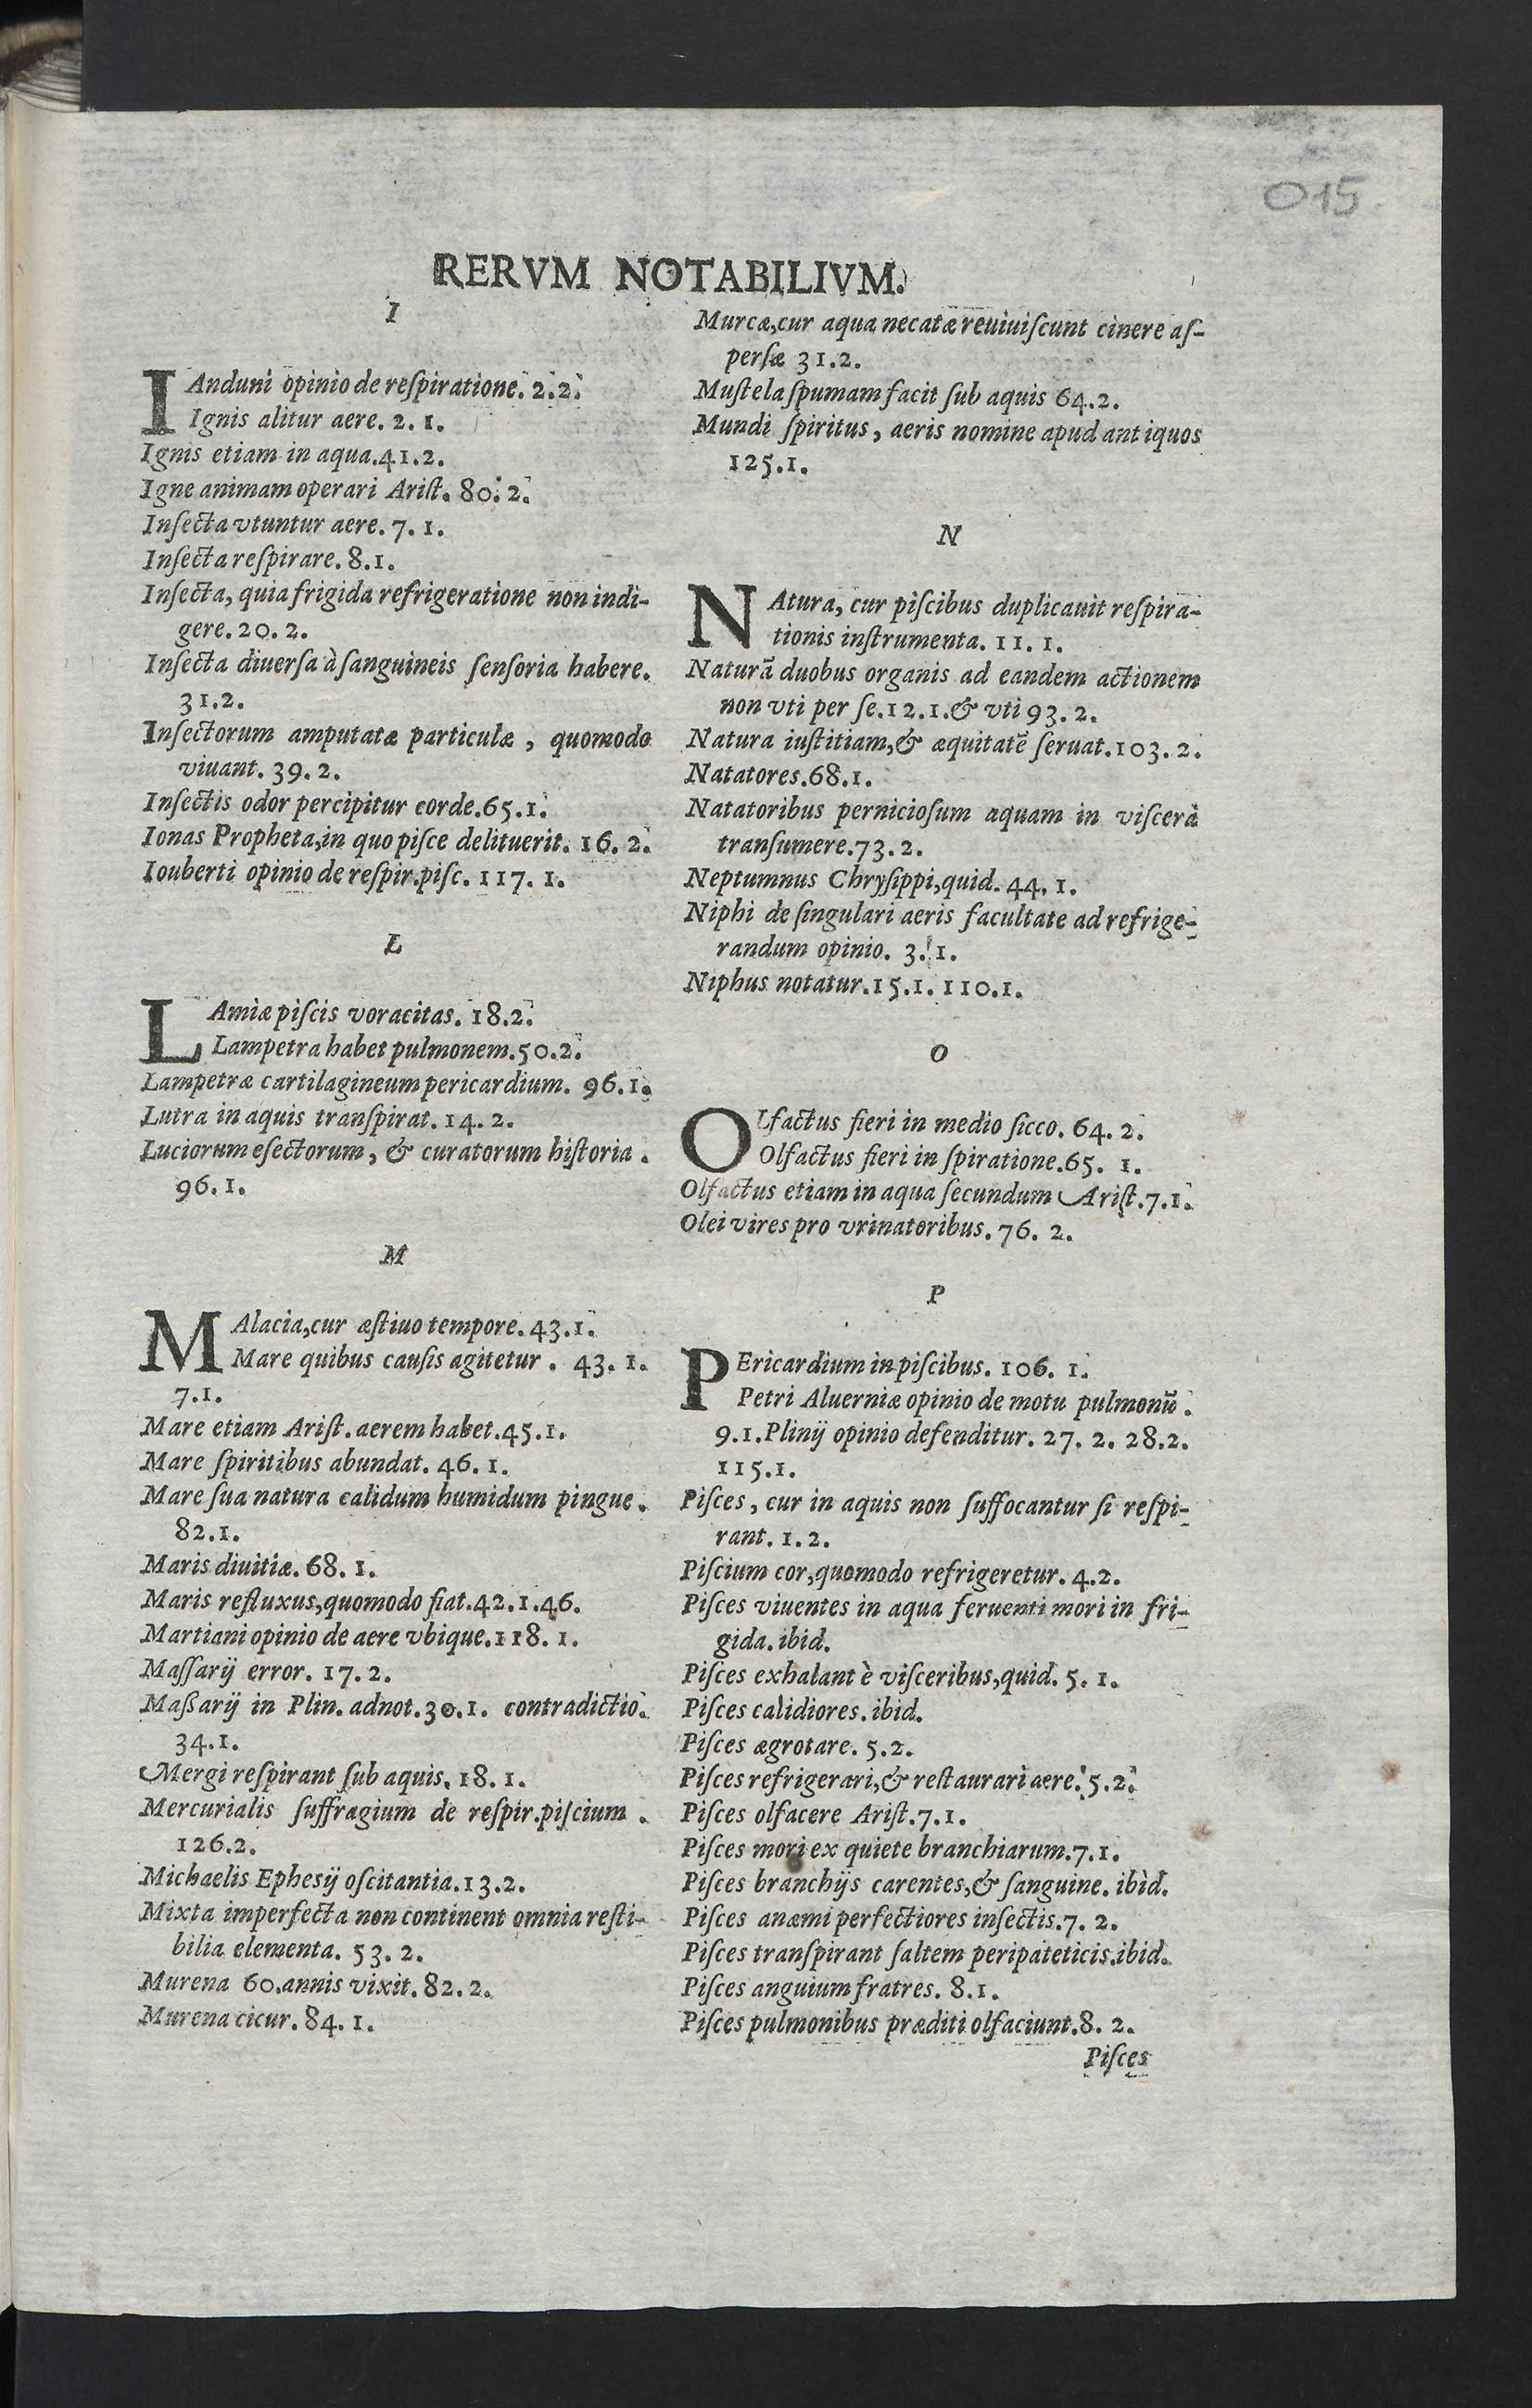 015
RERVM NOTABILIVM.
I
IAnduni opinio de reſpiratione. 2.2.
Ignis alitur aere. 2. 1.
Ignis etiam in aqua.41.2.
Igne animam operari Ariſt. 80.2.
Inſecta vtuntur aere. 7. 1.
Inſecta reſpirare. 8.1.
Inſecta, quia frigida refrigeratione non indi-
gere. 20. 2.
Inſecta diuerſa à ſanguineis ſenſoria habere.
31.2.
Inſectorum amputatæ particulæ, quomodo
viuant. 39. 2.
Inſectis odor percipitur corde.65.1.
Ionas Propheta,in quo piſce delituerit. 16. 2.
Iouberti opinio de reſpir.piſc. 117. 1.
L
LAmiæ piſcis voracitas. 18.2.
Lampetra habet pulmonem.50.2.
Lampetræ cartilagineum pericardium. 96.1.
Lutra in aquis tranſpirat. 14. 2.
Luciorum eſectorum, & curatorum hiſtoria.
96. 1.
M
MAlacia,cur æſtiuo tempore. 43.1.
Mare quibus cauſis agitetur. 43. 1.
7.1.
Mare etiam Ariſt. aerem habet.45.1.
Mare ſpiritibus abundat. 46. 1.
Mare ſua natura calidum humidum pingue.
82.1.
Maris diuitiæ. 68. 1.
Maris refluxus,quomodo fiat.42.1.46.
Martiani opinio de aere vbique.118. 1.
Maſſarij error. 17. 2.
Maßarij in Plin. adnot.30.1. contradictio.
34.1.
Mergi reſpirant ſub aquis. 18. 1.
Mercurialis ſuffragium de reſpir.piſcium.
126.2.
Michaelis Ephesij oſcitantia.13.2.
Mixta imperfecta non continent omnia reſti-
bilia elementa. 53. 2.
Murena 60.annis vixit. 82. 2.
Murena cicur. 84. 1.
Murcæ,cur aqua necatæ reuiuiſcunt cinere aſ-
perſæ 31.2.
Muſtela ſpumam facit ſub aquis 64.2.
Mundi ſpiritus, aeris nomine apud antiquos
125.1.
N
NAtura, cur piſcibus duplicauit reſpira-
tionis inſtrumenta. 11. 1.
Naturā duobus organis ad eandem actionem
non vti per ſe.12.1.& vti 93. 2.
Natura iuſtitiam,& æquitatē ſeruat.103. 2.
Natatores.68.1.
Natatoribus pernicioſum aquam in viſcera
tranſumere.73. 2.
Neptumnus Chryſippi,quid. 44. 1.
Niphi de ſingulari aeris facultate ad refrige-
randum opinio. 3. 1.
Niphus notatur.15.1. 110.1.
O
OLfactus fieri in medio ſicco. 64. 2.
Olfactus fieri in ſpiratione.65. 1.
Olfactus etiam in aqua ſecundum Ariſt.7.1.
Olei vires pro vrinatoribus. 76. 2.
P
PEricardium in piſcibus. 106. 1.
Petri Aluerniæ opinio de motu pulmonū.
9.1. Plinij opinio defenditur. 27. 2. 28.2.
115.1.
Piſces, cur in aquis non ſuffocantur ſi reſpi-
rant. 1. 2.
Piſcium cor,quomodo refrigeretur. 4.2.
Piſces viuentes in aqua feruenti mori in fri-
gida. ibid.
Piſces exhalant è viſceribus,quid. 5. 1.
Piſces calidiores. ibid.
Piſces ægrotare. 5.2.
Piſces refrigerari,& reſtaurari aere. 5.2.
Piſces olfacere Ariſt.7.1.
Piſces mori ex quiete branchiarum.7.1.
Piſces branchijs carentes,& ſanguine. ibid.
Piſces anæmi perfectiores inſectis.7. 2.
Piſces tranſpirant ſaltem peripateticis.ibid.
Piſces anguium fratres. 8.1.
Piſces pulmonibus præditi olfaciunt.8. 2.
Piſces